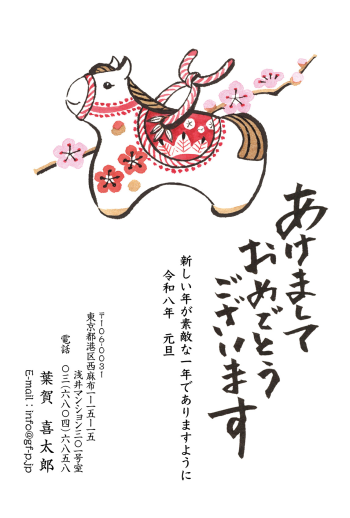 あけまして
おめでとう
ございます
新しい年が素敵な一年でありますように
令和八年　元旦
〒106-0031
東京都港区西麻布一-一五-一五
浅井マンション三〇一号室
電話　〇三(六八〇四)六八五八
葉賀　喜太郎
E-mail : info@gf-p.jp